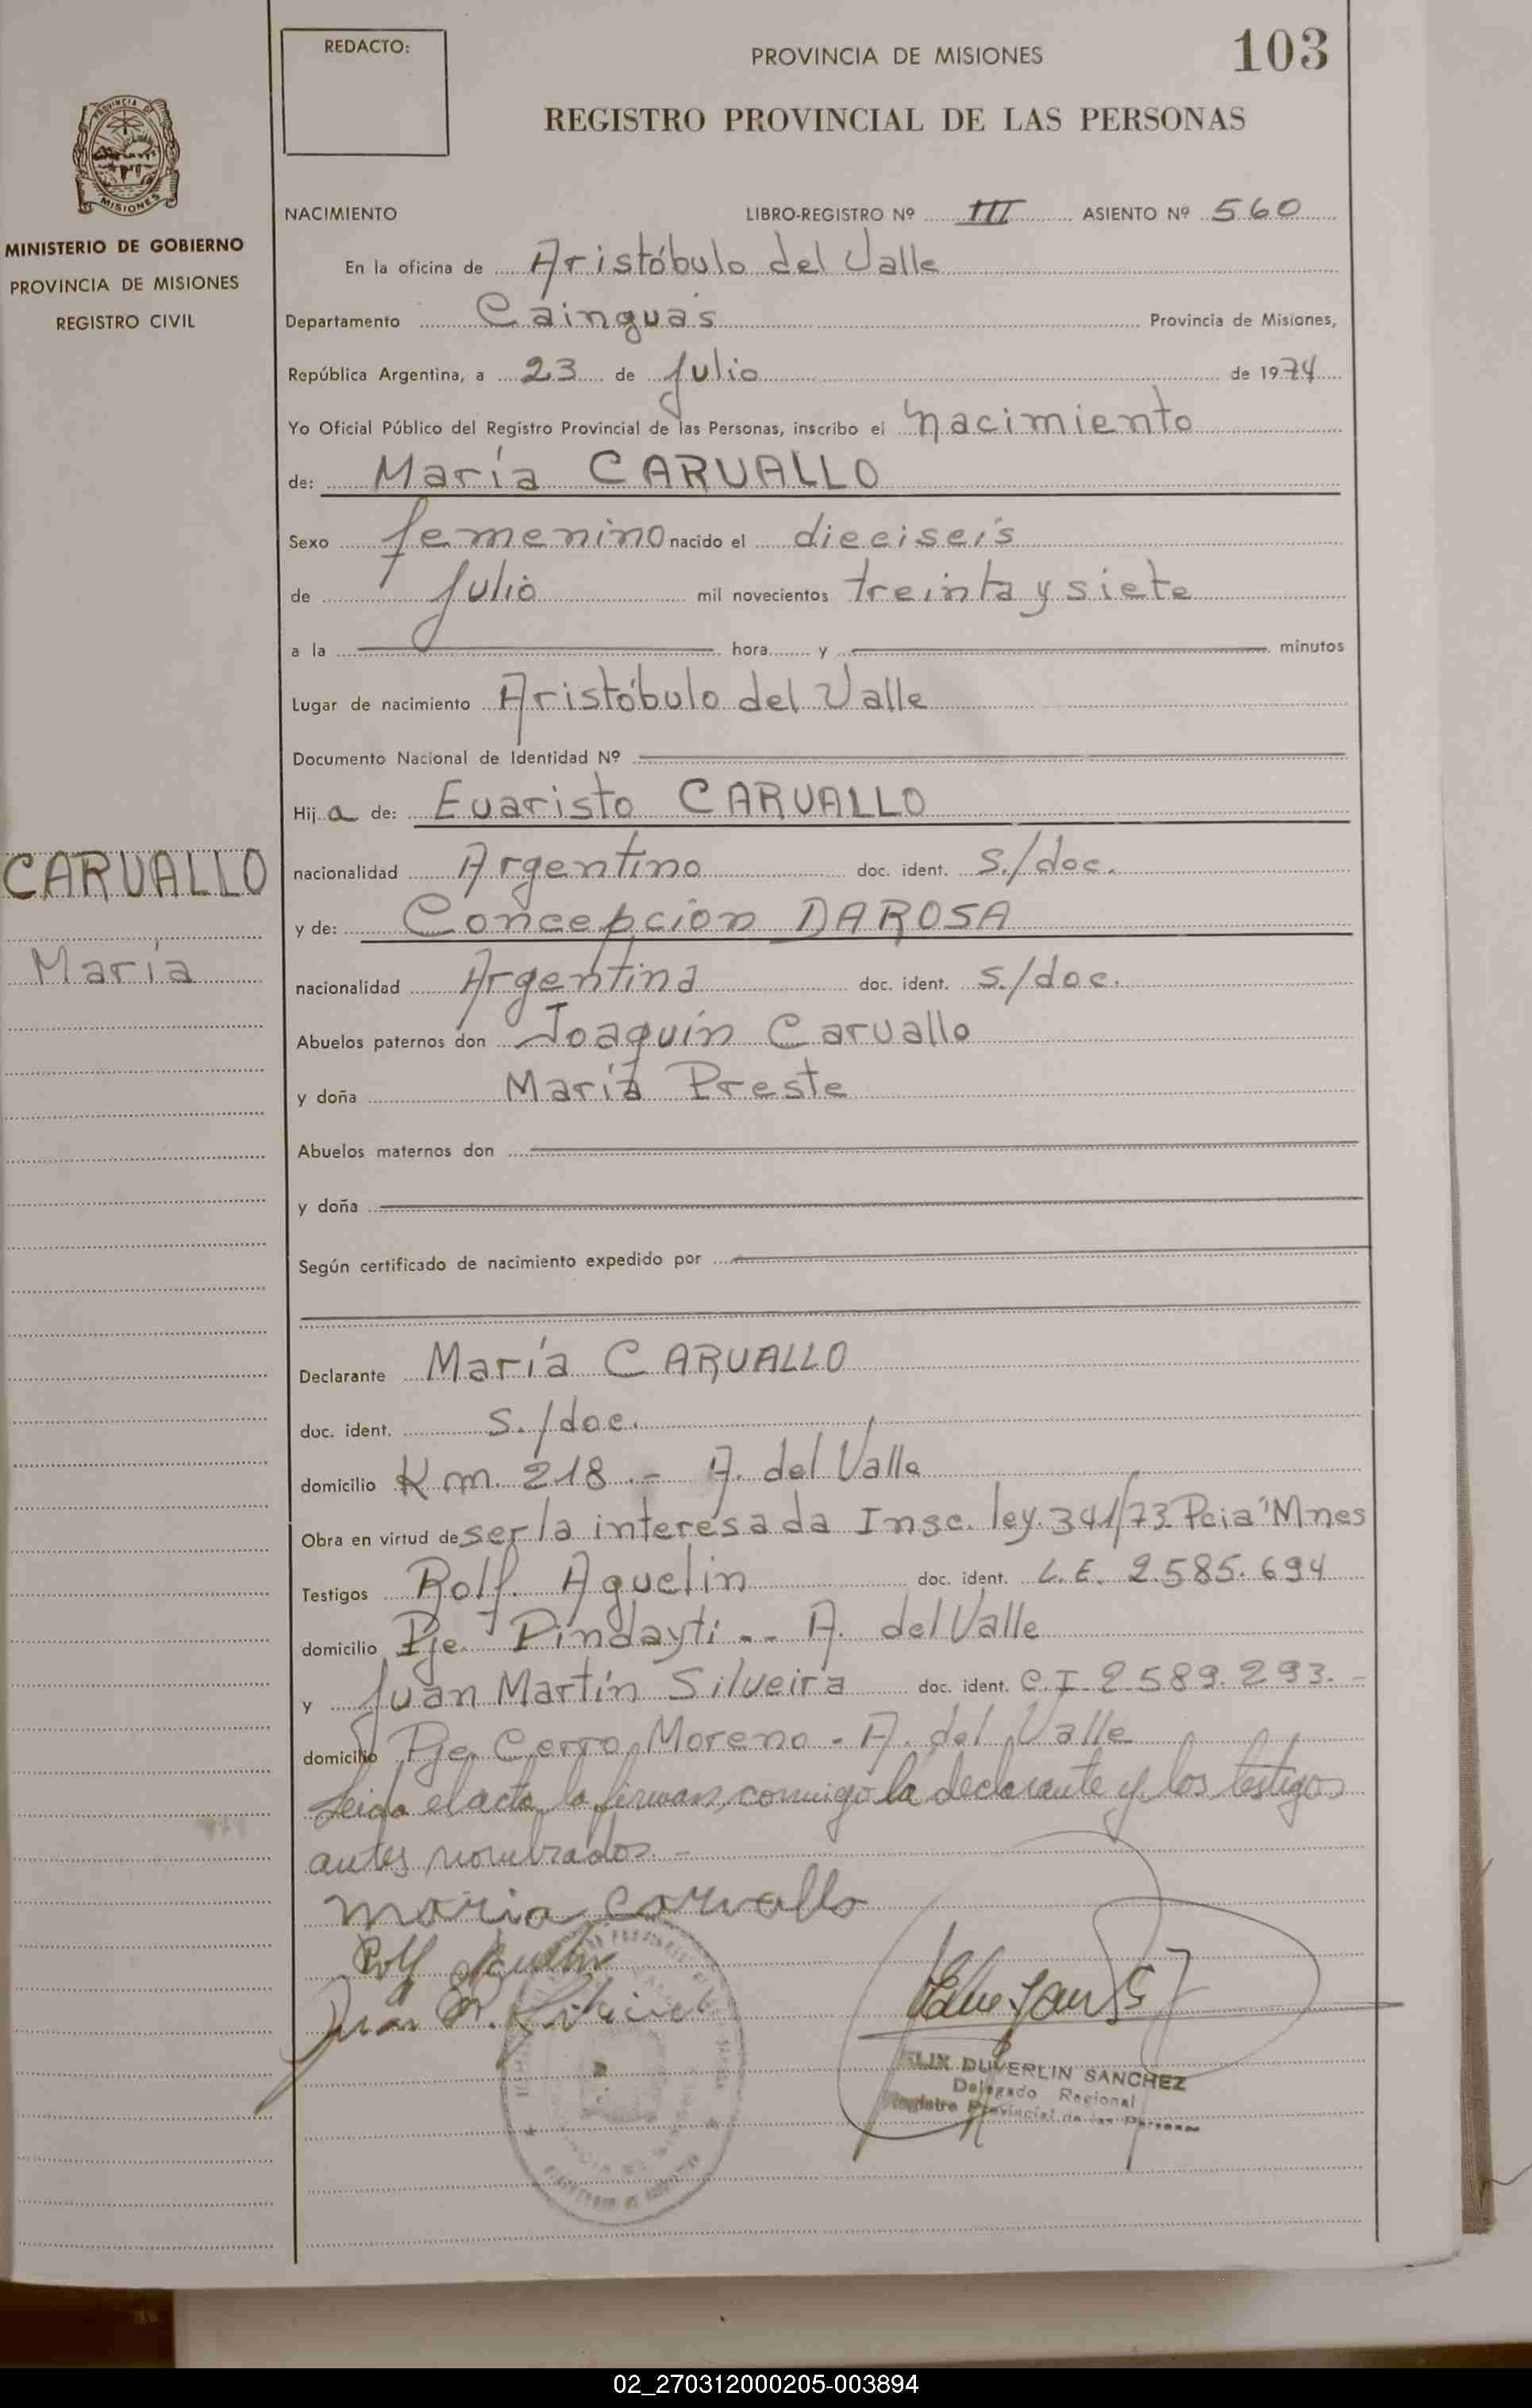 REDACTO:
PROVINCIA DE MISIONES
103
REGISTRO PROVINCIAL DE LAS PERSONAS
PROVINCIA DE
MISIONES
MINISTERIO DE GOBIERNO
PROVINCIA DE MISIONES
REGISTRO CIVIL
NACIMIENTO LIBRO-REGISTRO Nº III ASIENTO Nº 560
En la oficina de Aristóbulo del Valle
Departamento Cainguás Provincia de Misiones,
República Argentina, a 23 de Julio de 1974
Yo Oficial Público del Registro Provincial de las Personas, inscribo el nacimiento
de: María CARVALLO
Sexo femenino nacido el dieciseis
de Julio mil novecientos treinta y siete
a la hora y minutos
Lugar de nacimiento Aristóbulo del Valle
Documento Nacional de Identidad Nº
Hij a de: Evaristo CARVALLO
CARVALLO
María
nacionalidad Argentino doc. ident. S./doc.
y de: Concepción DAROSA
nacionalidad Argentina doc. ident. S./doc.
Abuelos paternos don Joaquín Carvallo
y doña María Preste
Abuelos maternos don
y doña
Según certificado de nacimiento expedido por
Declarante María CARVALLO
doc. ident. S./doc.
domicilio Km. 218.- A. del Valle
Obra en virtud de ser la interesada Insc. ley. 341/73 Pcia Mnes
Testigos Rolf. Aguelin doc. ident. L.E. 2.585.694
domicilio Pje. Pindayti -- A. del Valle
y Juan Martín Silveira doc. ident. C.I 2589.293.-
domicilio Pje. Cerro Moreno - A. del Valle
Leida el acta la firman, conmigo la declarante y los testigos
antes nombrados -
maria corvallo
Rolf
Juan M.
FELIX DUVERLIN SANCHEZ
Delegado Regional
Registro Provincial de las Personas
02_270312000205-003894